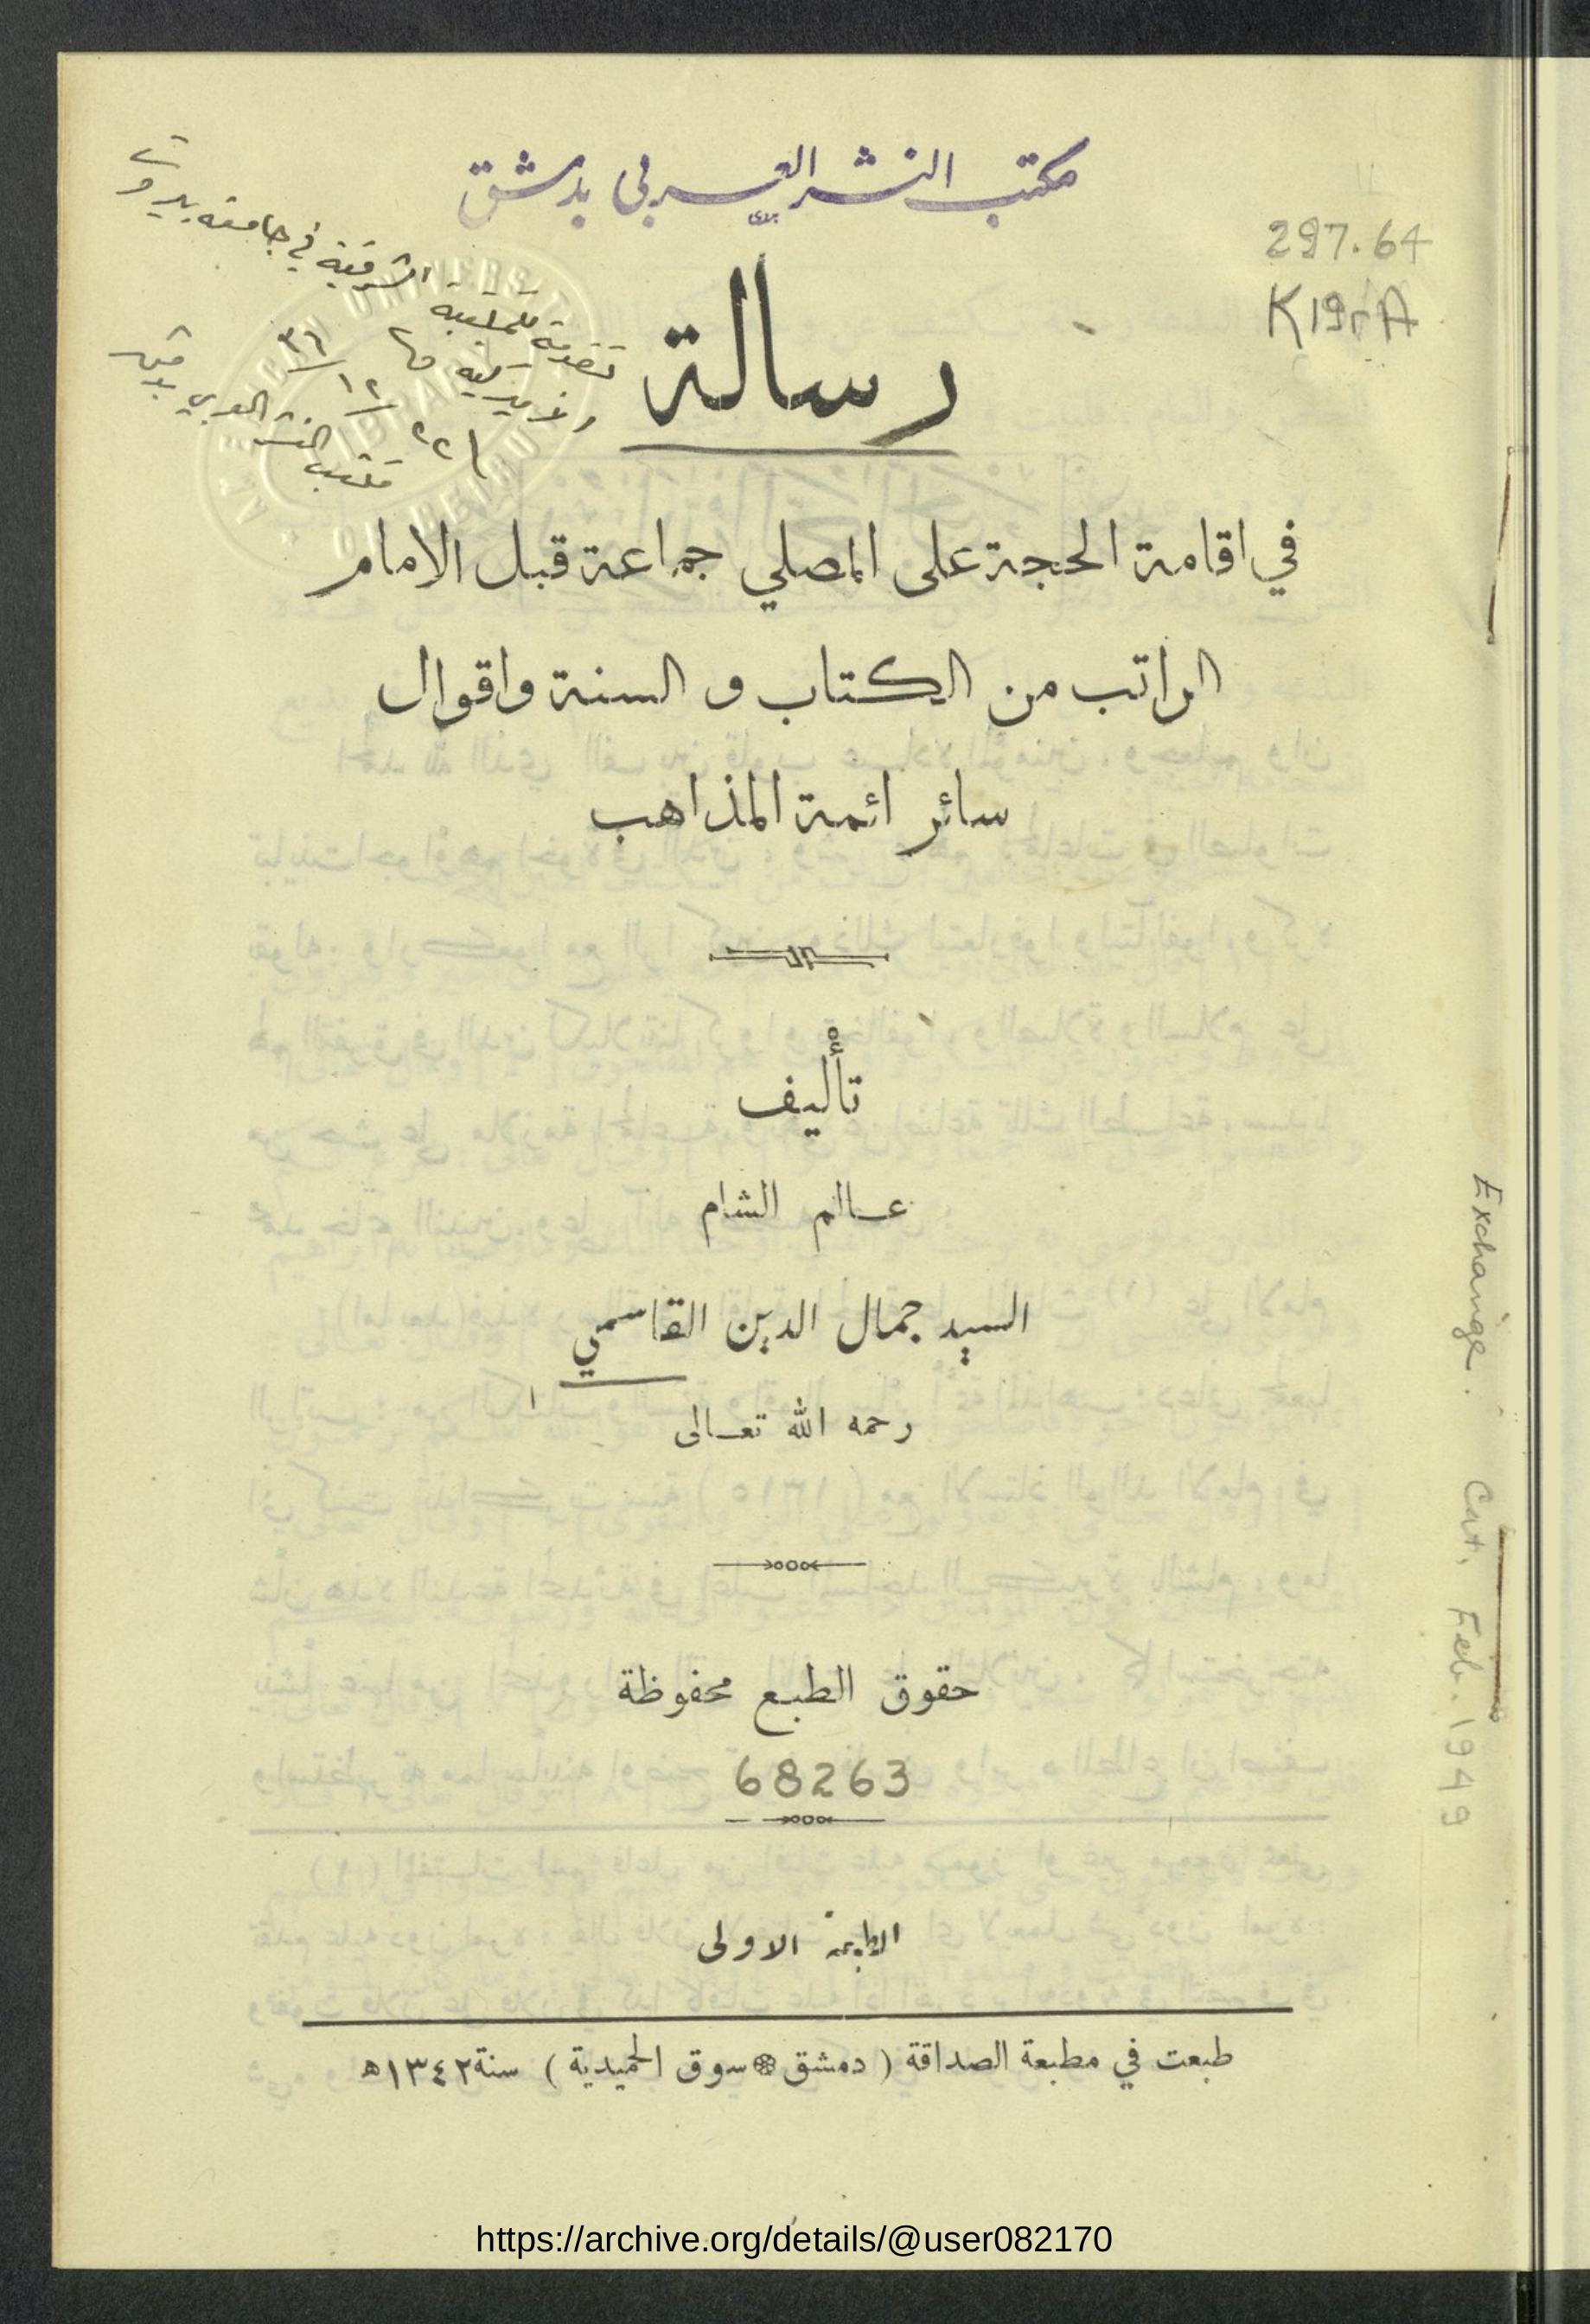 مكتب النشر العربي بدمشق
297.64
K19rA
تقدمة للمكتبة الشرقية في جامعة بيروت
الاميركية
١٢ ٣٦
مكتب النشر العربي بدمشق
رسالة
في اقامة الحجة على المصلي جماعة قبل الامام
الراتب من الكتاب و السنة واقوال
سائر ائمة المذاهب
تأليف
عالم الشام
السيد جمال الدين القاسمي
رحمه الله تعالى
حقوق الطبع محفوظة
68263
الطبعة الاولى
طبعت في مطبعة الصداقة ( دمشق سوق الحميدية ) سنة ١٣٤٢ه
Exchange. Cat. Feb. 1949
https://archive.org/details/@user082170